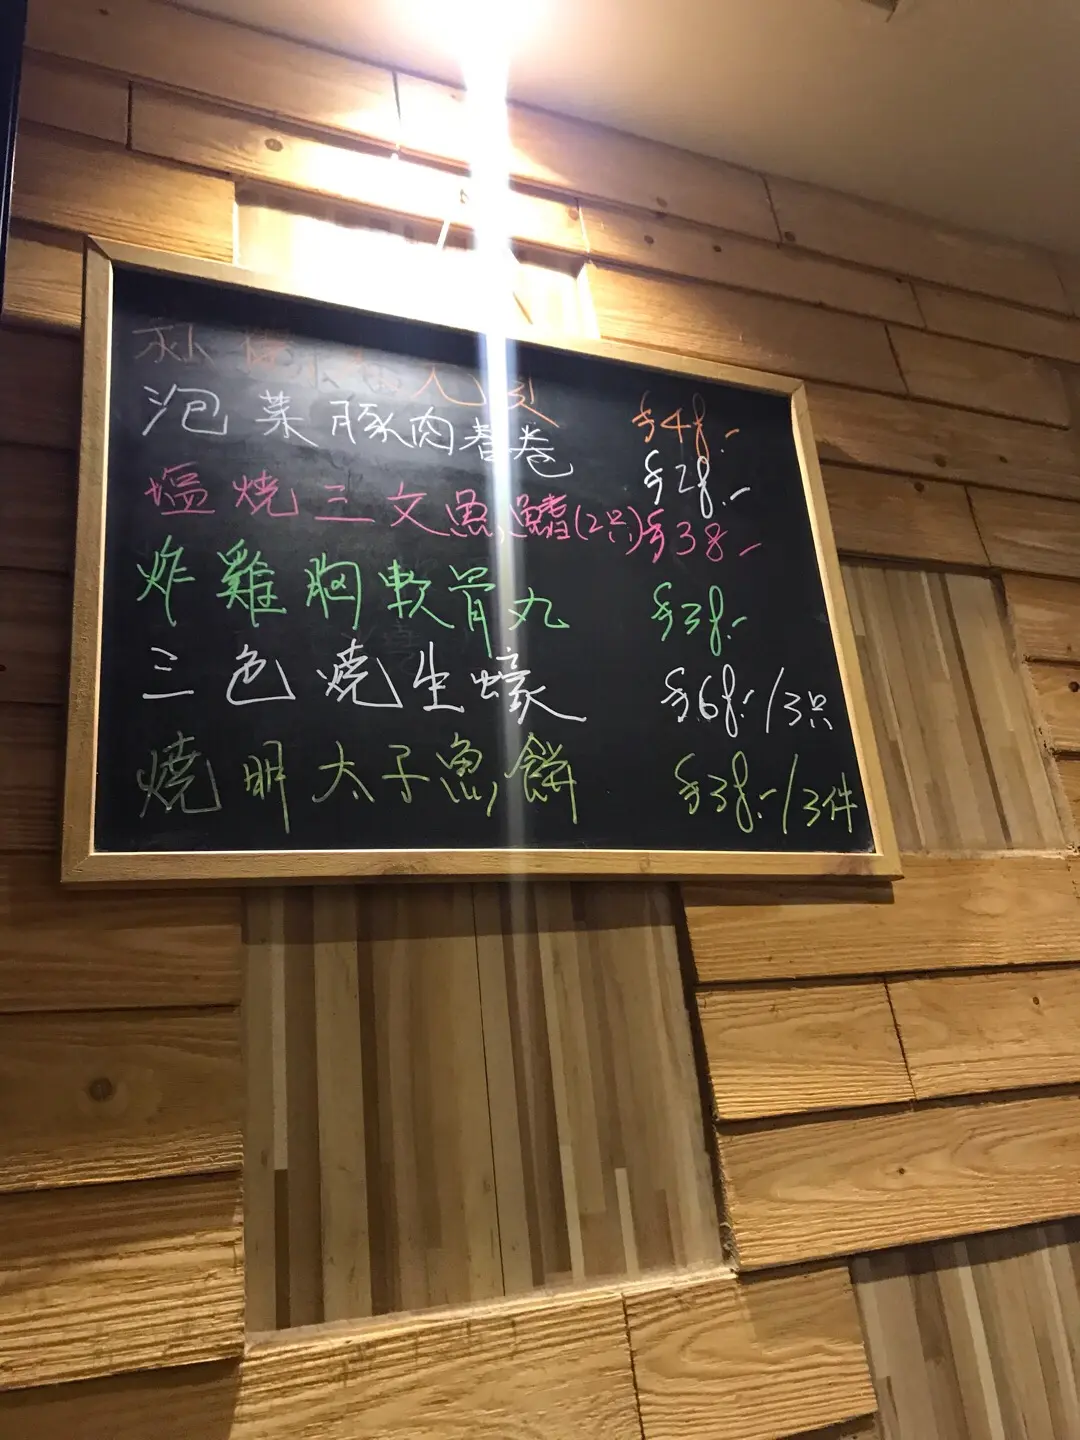 $48.-
泡菜豚肉春卷 $28.-
塩燒三文魚鰭(2只) $38-
炸雞胸軟骨丸 $38.-
三色燒生蠔 $68.-/3只
燒明太子魚餅 $38.-/3件